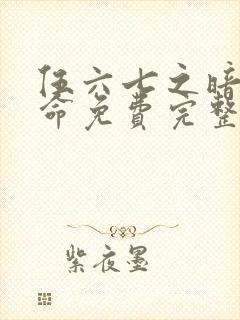 伍六七之暗
命免费完整
紫夜墨